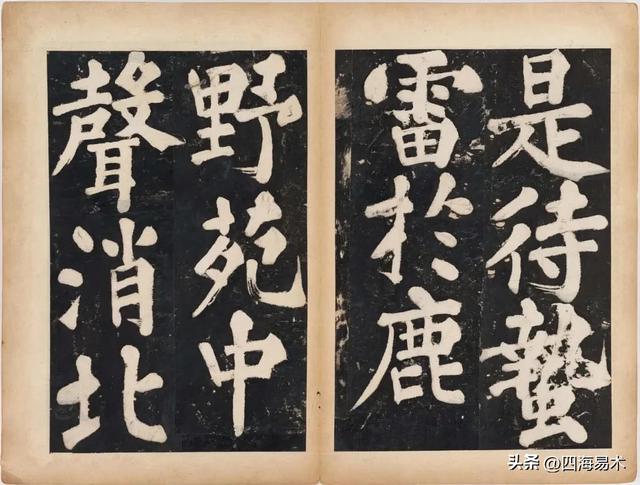 是待蟄
雷於鹿
野苑中
聲消北
头条 @四海易木